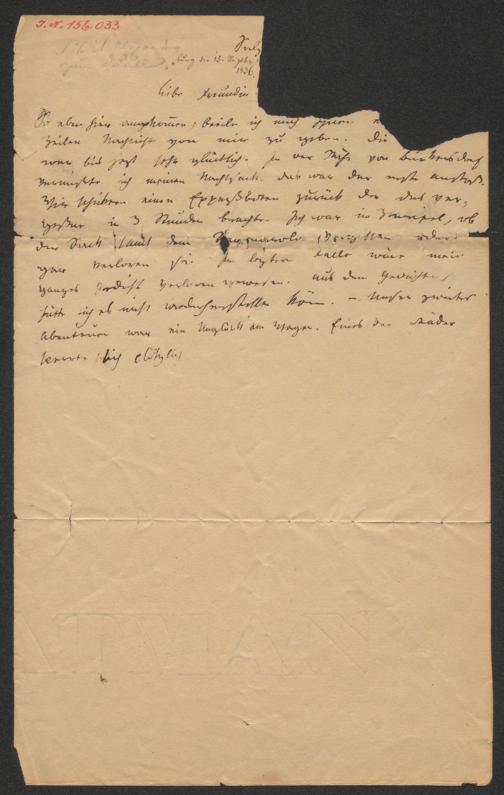 I.N. 156.033
Salz
burg den 13. Septbr
1836.
Liebe Freundin
So eben hier angekommen, beeile ich mich Ihnen
Zeilen Nachricht von mir zu geben. Die
war bis jetzt sehr glücklich. In der Nähe von
vermißte ich meinen Nachtsack. Das war der erste
Wir schickten einen Expreßboten zurück der das
in 3 Stunden brachte. Ich war im Zweifel, ob
der Sack samt dem oder
gar verloren sei. Im letzten Falle wäre mein
ganzes Gedicht verloren gewesen. aus dem Gedächt
hätte ich es nicht wiederherstellen können. — Unser zweites
Abenteuer war ein Unglück am Wagen. Eines der Räder
sich plötzlich
WATMAN